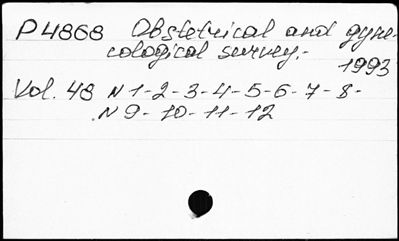 P4868 Obstetrical and gyne-
cological survey.-
1993
Vol. 48 N 1-2-3-4-5-6-7-8-
N 9-10-11-12